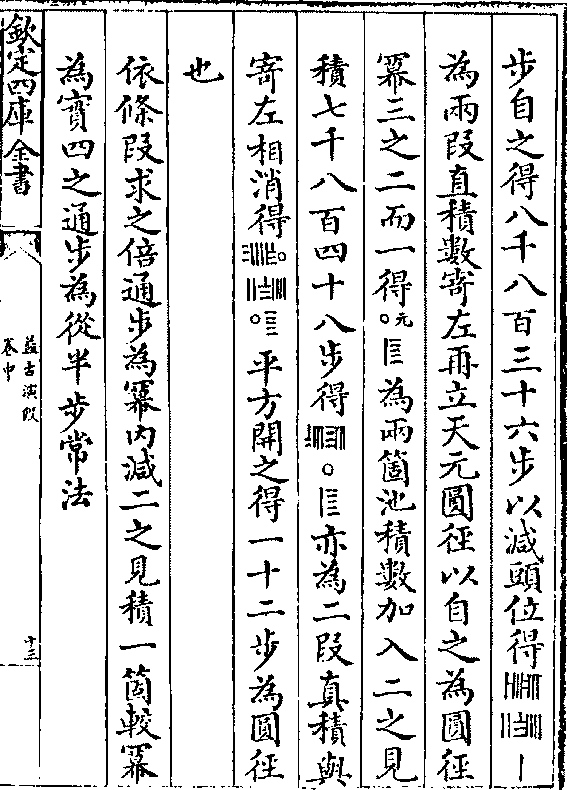 步自之得八千八百三十六步以減頭位得
為兩段直積數寄左再立天元圓徑以自之為圓徑
冪三之二而一得〇元為兩箇池積數加入二之見
積七千八百四十八步得〇亦為二段真積與
寄左相消得〇平方開之得一十二步為圓徑
也
依條段求之倍通步為冪內減二之見積一箇較冪
為實四之通步為從半步常法
欽定四庫全書
益古演段
卷中
十三